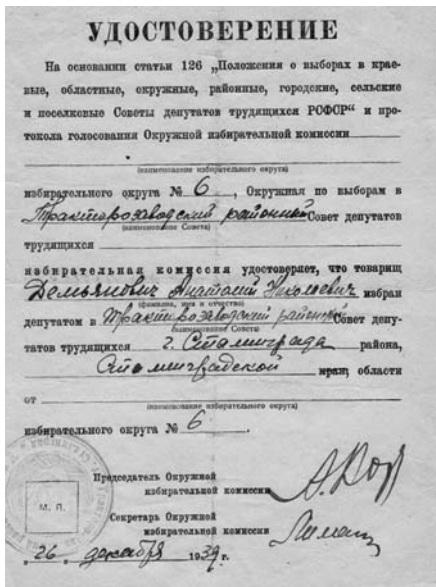 УДОСТОВЕРЕНИЕ
На основании статьи 126 „Положения о выборах в крае-
вые, областные, окружные, районные, городские, сельские
и поселковые Советы депутатов трудящихся РСФСР“ и про-
токола голосования Окружной избирательной комиссии
(наименование избирательного округа)
избирательного округа № 6, Окружная по выборам в
Тракторозаводский районный Совет депутатов
(наименование Совета)
трудящихся
избирательная комиссия удостоверяет, что товарищ
Демьянович Анатолий Николаевич избран
(фамилия, имя и отчество)
депутатом в Тракторозаводский районный Совет депу-
(наименование Совета)
татов трудящихся г. Сталинграда района,
Сталинградской края, области
от
(наименование избирательного округа)
избирательного округа № 6.
Председатель Окружной
избирательной комиссии
М. П.
Секретарь Окружной
избирательной комиссии
„26„ декабря 1939 г.